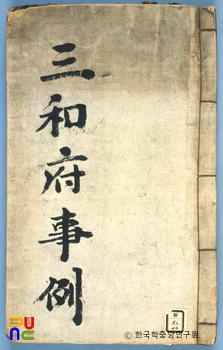 三和府事例
PUNC
ⓒ 한국학중앙연구원